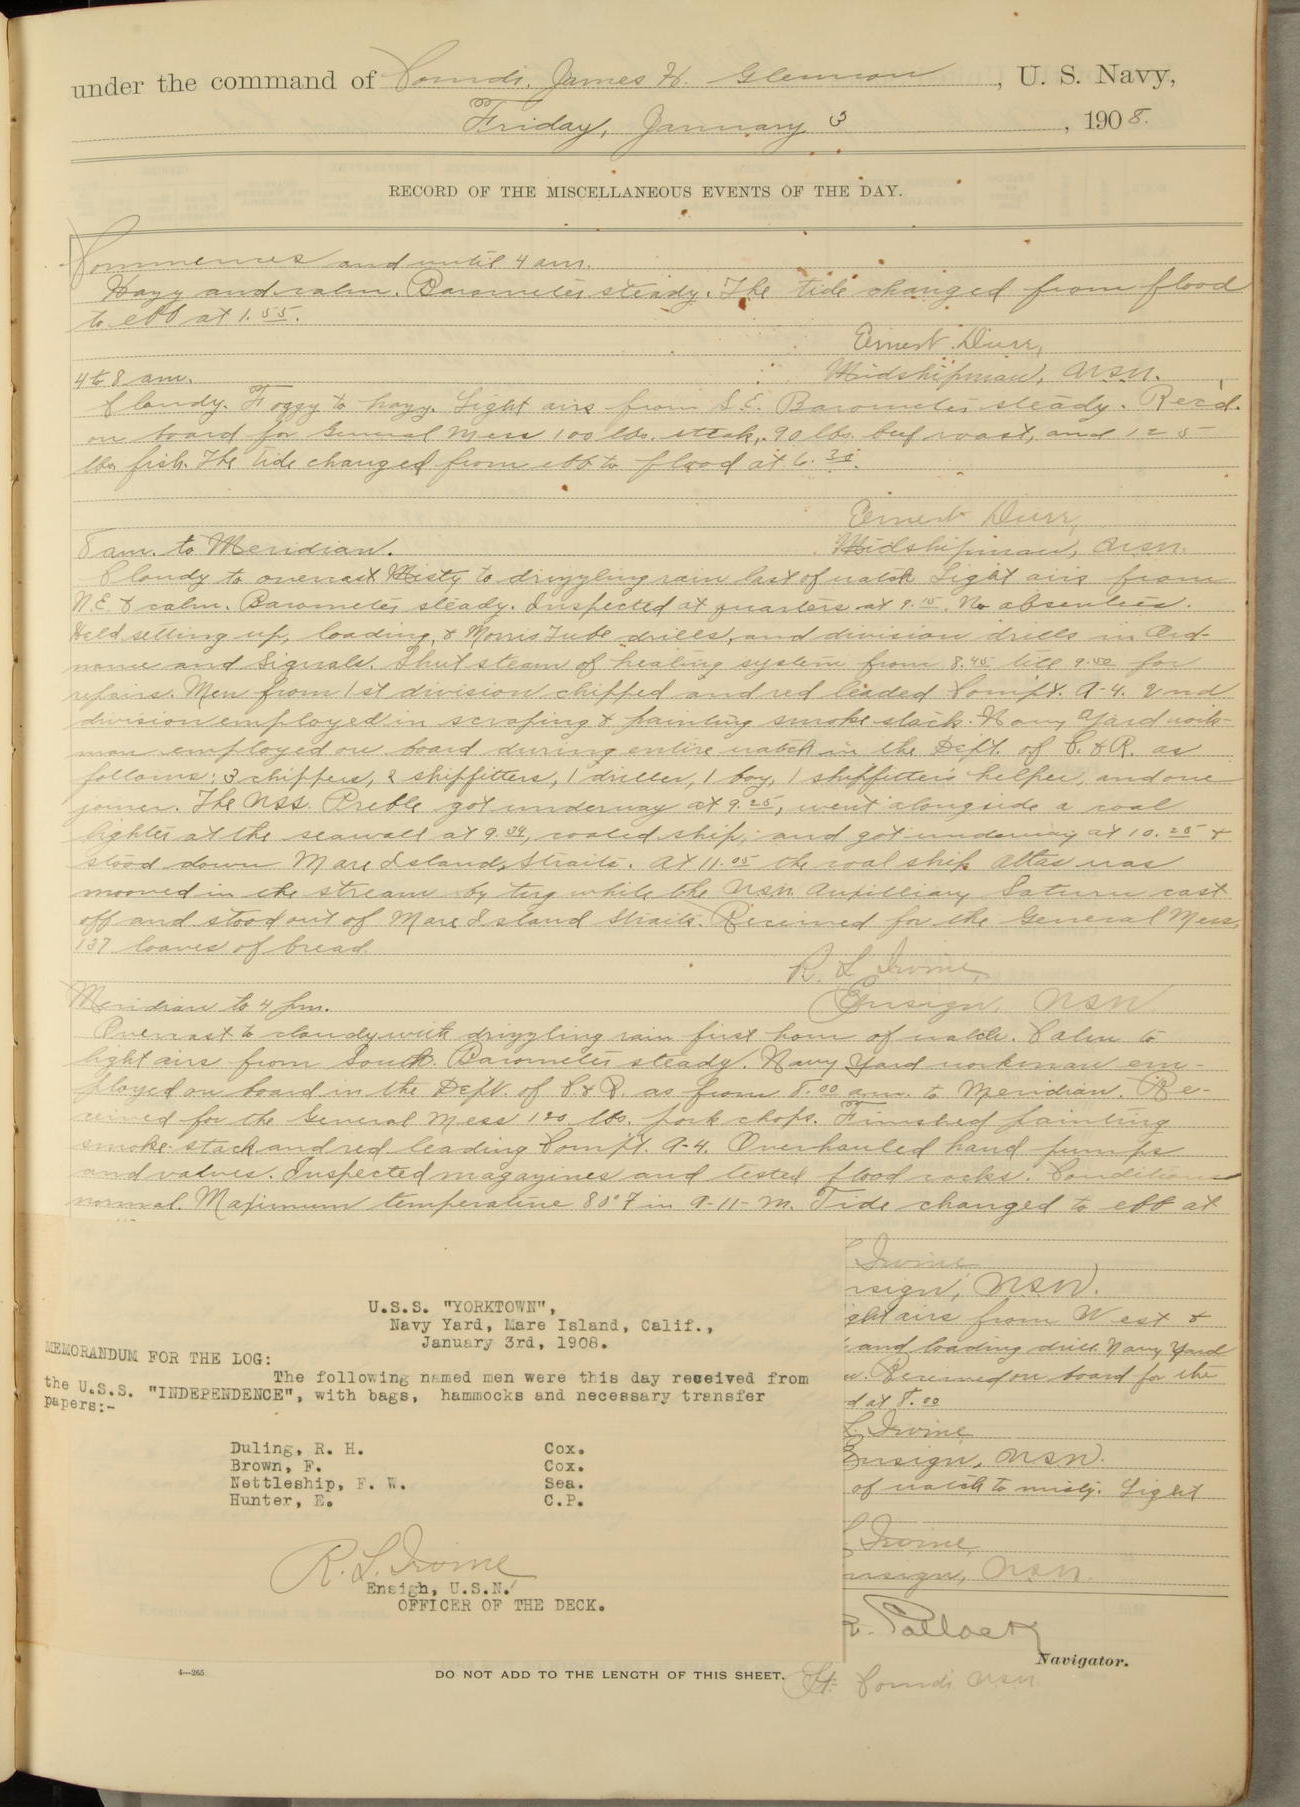 under the command of Comdr. James H. Glennon, U. S. Navy,
Friday, January 3, 1908.
RECORD OF THE MISCELLANEOUS EVENTS OF THE DAY.
Commences and until 4 am.
Hazy and calm. Barometer steady. The tide changed from flood
to ebb at 1.55.
Ernest Durr,
Midshipman, USN.
4 to 8 am.
Cloudy. Foggy to hazy. Light airs from S.E. Barometer steady. Rec'd.
on board for General Mess 100 lbs. steak, 90 lbs. beef roast, and 125
lbs fish. The tide changed from ebb to flood at 6.
Ernest Durr,
Midshipman, USN.
8 am. to Meridian.
Cloudy to overcast Misty to drizzling rain last of watch Light airs from
N.E. & calm. Barometer steady. Inspected at quarters at 9.15. No absentees.
Held setting up, loading, & Morris Tube drills, and division drills in Ord-
nance and Signals. Shut steam of heating system from 8.45 till 9.50 for
repairs. Men from 1st division chipped and red leaded Compt. A-4. 2nd
division employed in scraping & painting smoke stack. Navy Yard work-
man employed on board during entire watch in the Dept. of C. & R. as
follows: 3 chippers, 2 shipfitters, 1 driller, 1 boy, 1 shipfitter's helper, and one
joiner. The USS. Preble got underway at 9.25, went alongside a coal
lighter at the seawall at 9.34, coaled ship, and got underway at 10.25 &
stood down Mare Island Straits. At 11.05 the coal ship Atlas was
moored in the stream by tug while the USN Auxilliary Saturn cast
off and stood out of Mare Island Straits. Received for the General Mess,
137 loaves of bread.
R. L. Irvine,
Ensign, USN
Meridian to 4 pm.
Overcast to cloudy with drizzling rain first hour of watch. Calm to
light airs from South. Barometer steady. Navy Yard workman em-
ployed on board in the Dept. of C & R. as from 8.00 am. to Meridian. Re-
ceived for the General Mess 120 lbs. pork chops. Finished painting
smoke-stack and red leading Compt. A-4. Overhauled hand pumps
and valves. Inspected magazines and tested flood cocks. Conditions
normal. Maximum temperature 80°F in A-11-M. Tide changed to ebb at
Irvine
nsign, USN.
ght airs from West &
and loading drill. Navy Yard
Received on board for the
d at 8.00
L. Irvine
Ensign, USN.
of watch to misty. Light
Irvine,
nsign, USN.
U.S.S. "YORKTOWN",
Navy Yard, Mare Island, Calif.,
January 3rd, 1908.
MEMORANDUM FOR THE LOG:
The following named men were this day received from
the U.S.S. "INDEPENDENCE", with bags, hammocks and necessary transfer
papers:-
Duling, R. H. Cox.
Brown, F. Cox.
Nettleship, F. W. Sea.
Hunter, E. C.P.
R. L. Irvine
Ensigh, U.S.N.
OFFICER OF THE DECK.
Pollock
Navigator.
4—265
DO NOT ADD TO THE LENGTH OF THIS SHEET.
Lt. Comdr USN